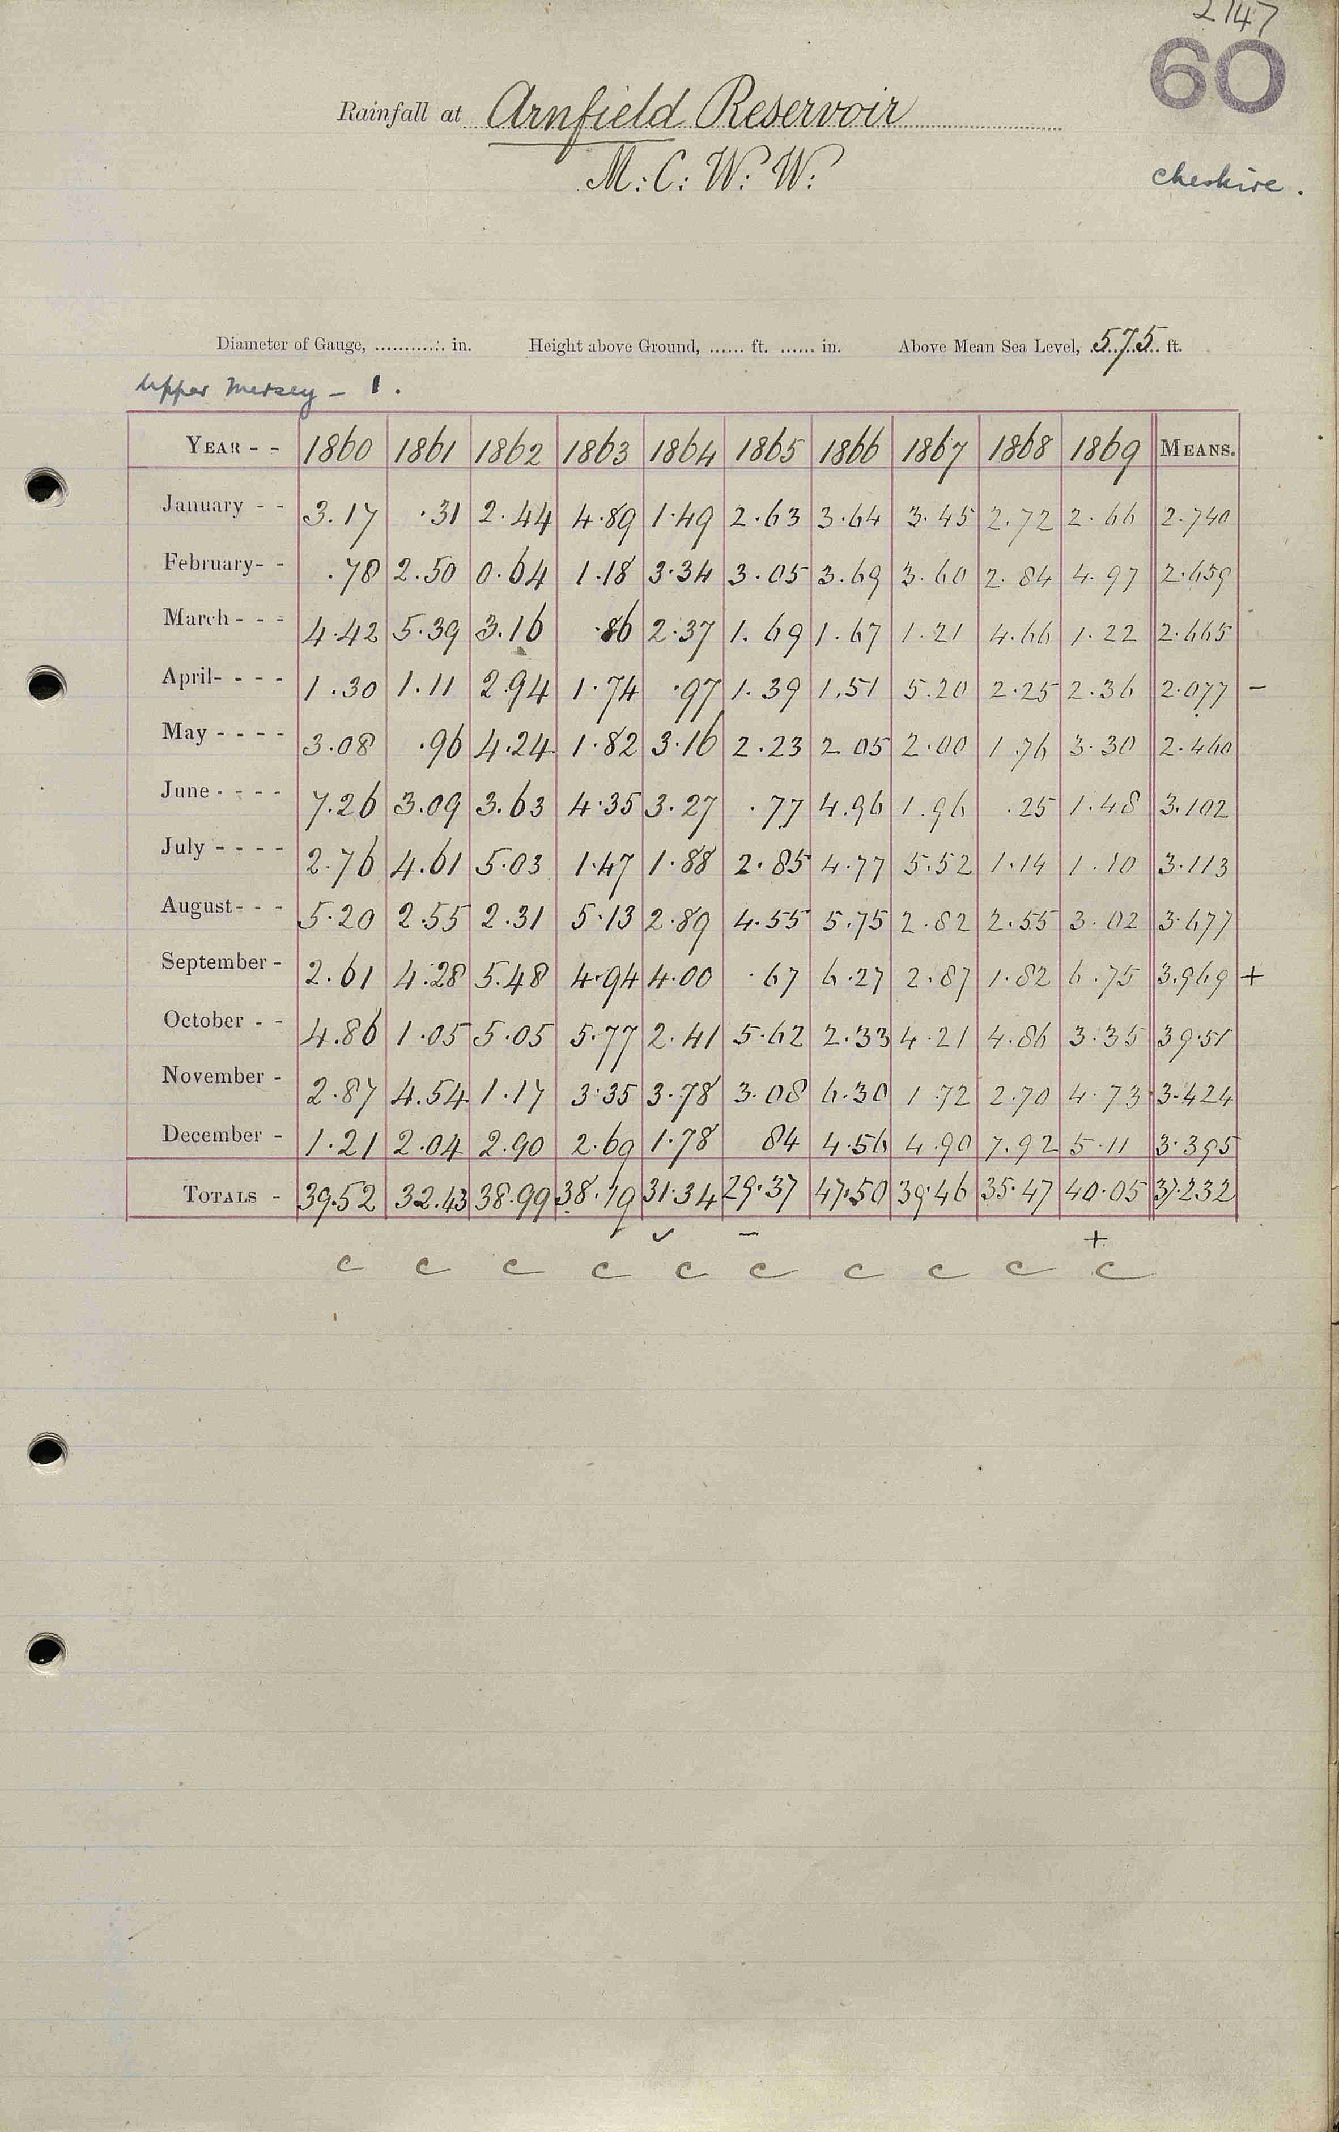 2747
60
Rainfall at Arnfield Reservoir
M: C: W: W:
Cheshire.
Diameter of Gauge, ............ in. Height above Ground, ...... ft. ...... in. Above Mean Sea Level, 575 ft.
Upper Mersey - 1.
YEAR - - 1860 1861 1862 1863 1864 1865 1866 1867 1868 1869 MEANS.
January - - 3.17 .31 2.44 4.89 1.49 2.63 3.64 3.45 2.72 2.66 2.740
February - - .78 2.50 0.64 1.18 3.34 3.05 3.69 3.60 2.84 4.97 2.659
March - - - 4.42 5.39 3.16 .86 2.37 1.69 1.67 1.21 4.66 1.22 2.665
April - - - - 1.30 1.11 2.94 1.74 .97 1.39 1.51 5.20 2.25 2.36 2.077 -
May - - - - 3.08 .96 4.24 1.82 3.16 2.23 2 05 2.00 1.76 3.30 2.460
June - - - - 7.26 3.09 3.63 4.35 3.27 .77 4.96 1.96 .25 1.48 3.102
July - - - - 2.76 4.61 5.03 1.47 1.88 2.85 4.77 5.52 1.14 1.10 3.113
August - - - 5.20 2.55 2.31 5.13 2.89 4.55 5.75 2.82 2.55 3.02 3.677
September - 2.61 4.28 5.48 4.94 4.00 .67 6.27 2.87 1.82 6.75 3.969 +
October - - 4.86 1.05 5.05 5.77 2.41 5.62 2.33 4.21 4.86 3.35 39.51
November - 2.87 4.54 1.17 3.35 3.78 3.08 6.30 1.72 2.70 4.73 3.424
December - 1.21 2.04 2.90 2.69 1.78 84 4.56 4.90 7.92 5.11 3.395
TOTALS - 39.52 32.43 38.99 38.19 31.34 29.37 47.50 39.46 35.47 40.05 37.232
✓ - +
c c c c c c c c c c